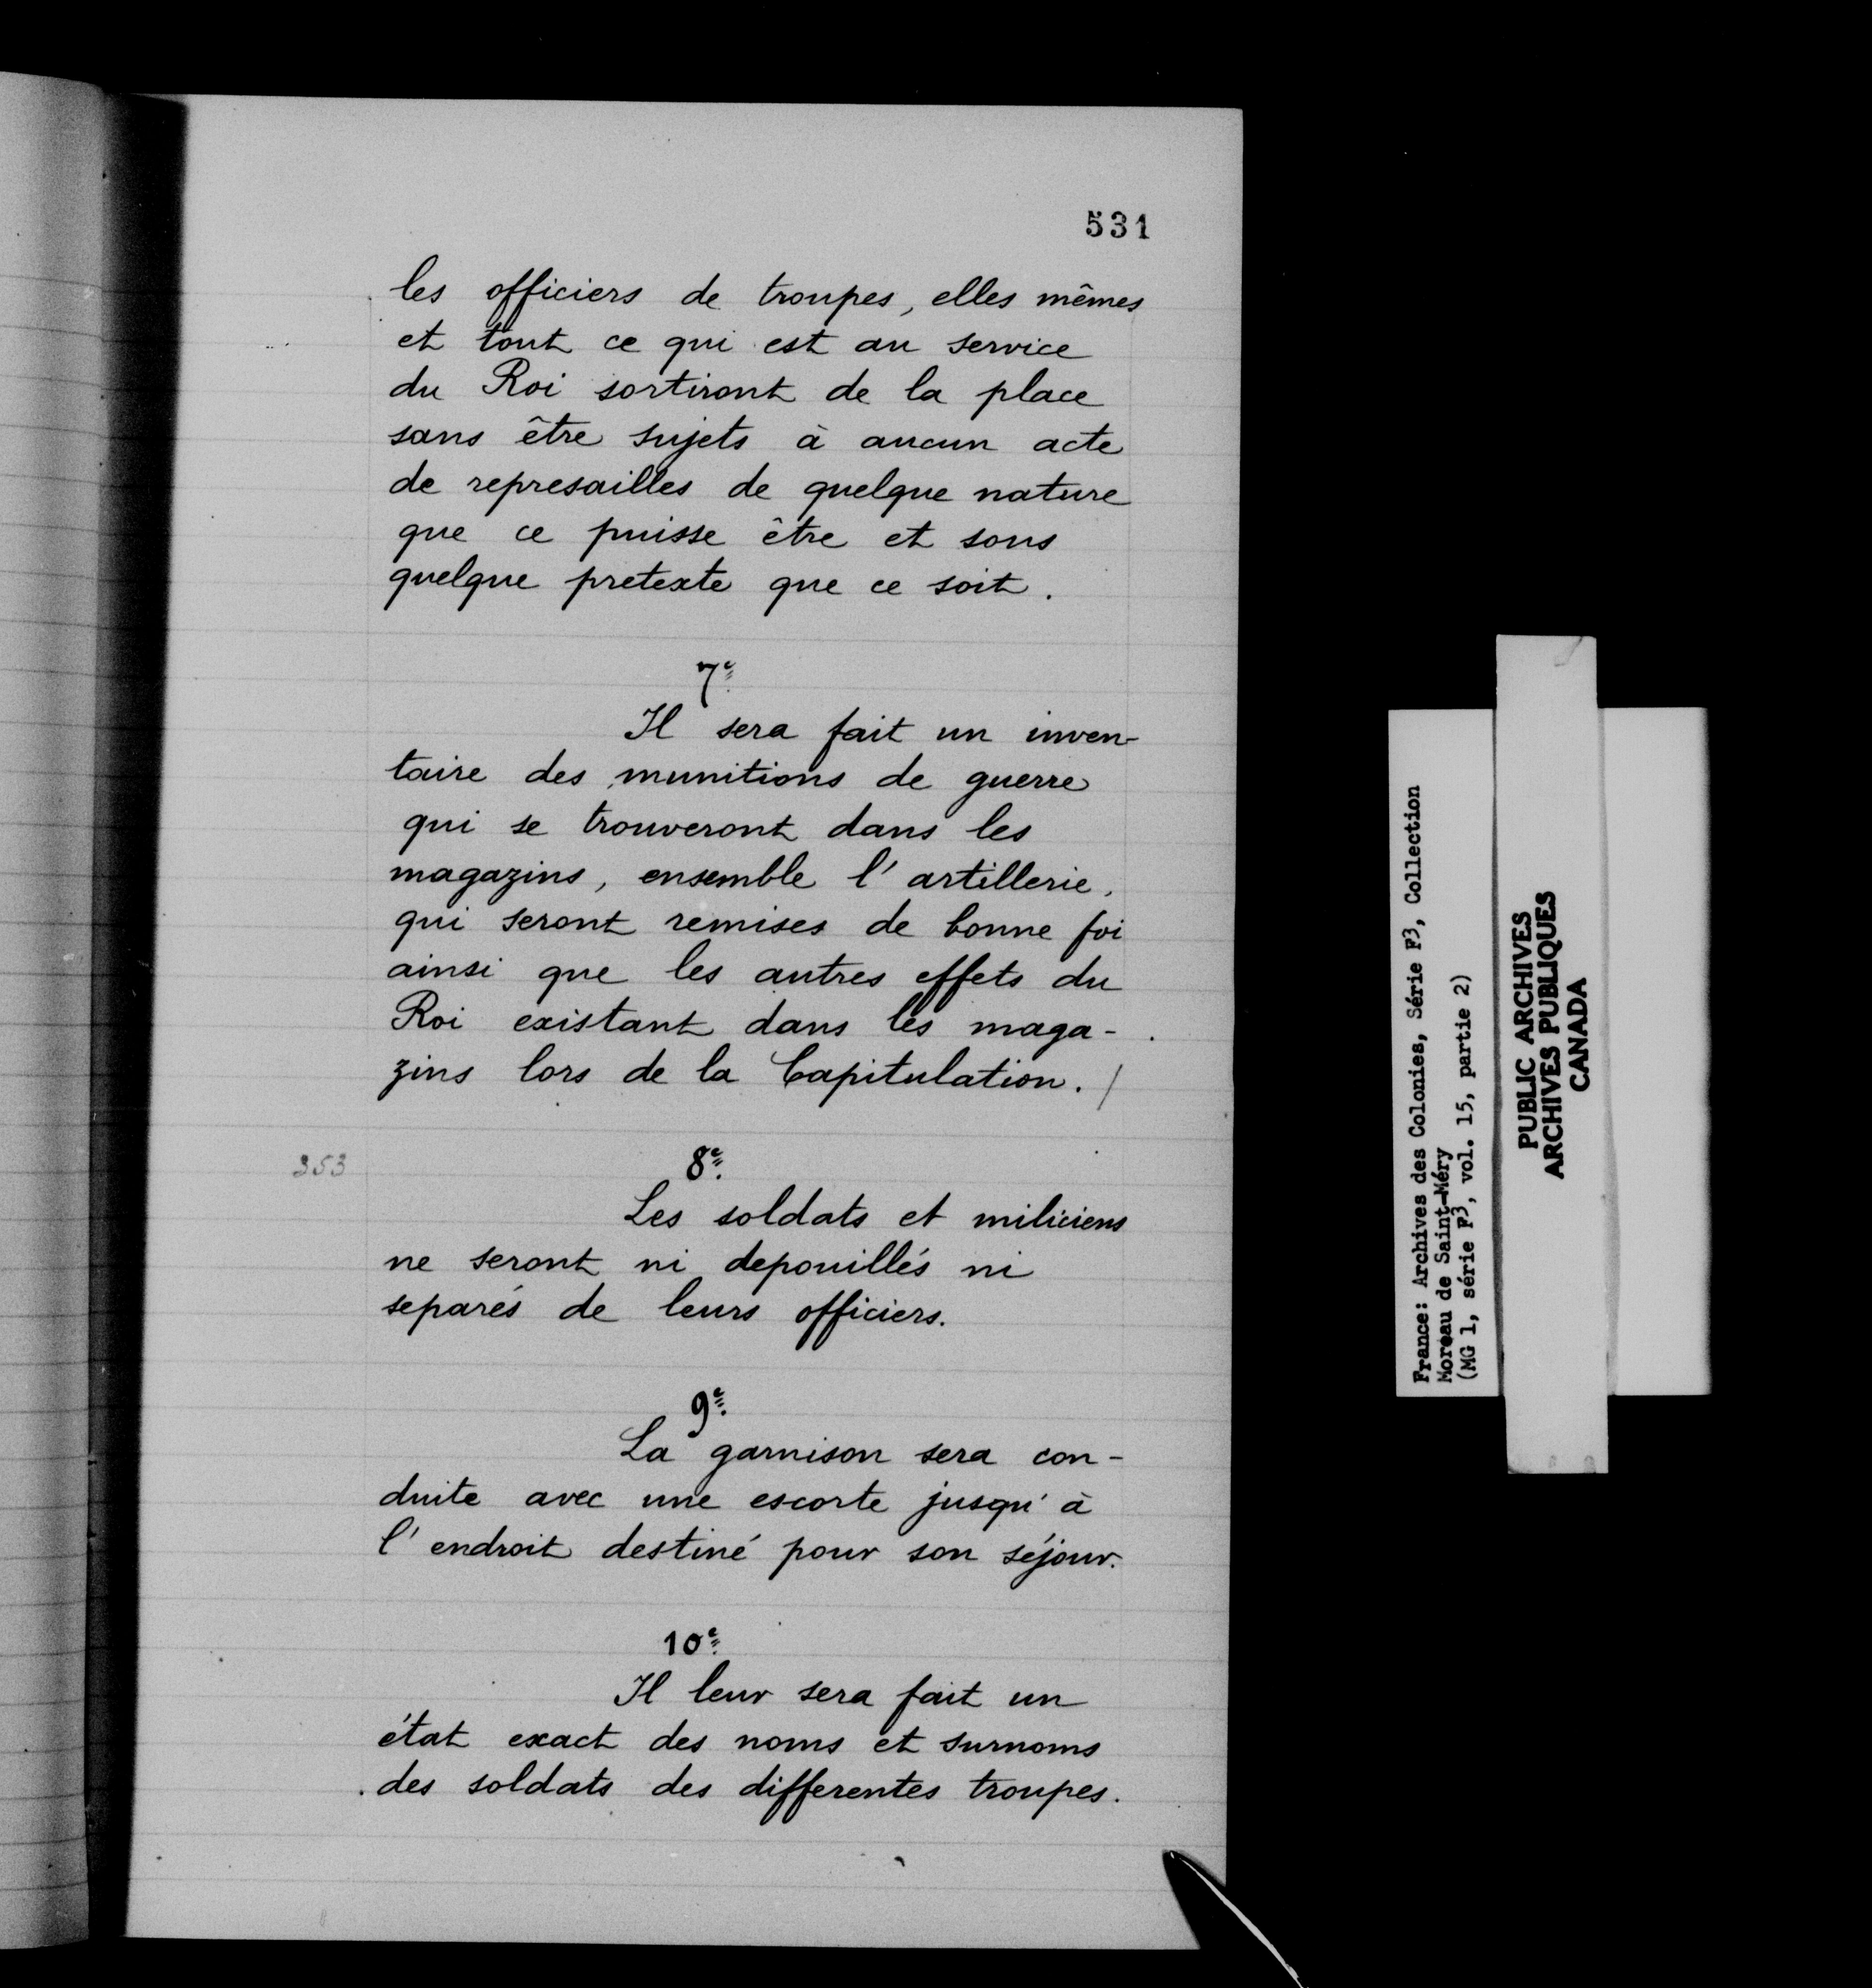 531
les officiers de troupes, elles mêmes
et tout ce qui est au service
du Roi sortiront de la place
sans être sujets à aucun acte
de represailles de quelque nature
que ce puisse être et sous
quelque pretexte que ce soit.
7e
Il sera fait un inven-
taire des munitions de guerre
qui se trouveront dans les
magazins, ensemble l'artillerie,
qui seront remises de bonne foi
ainsi que les autres effets du
Roi existant dans les maga-
zins lors de la Capitulation. /
353
8e
Les soldats et miliciens
ne seront ni depouillés ni
separés de leurs officiers.
9e
La garnison sera con-
duite avec une escorte jusqu'à
l'endroit destiné pour son séjour.
10e
Il leur sera fait un
état exact des noms et surnoms
des soldats des differentes troupes.
France: Archives des Colonies, Série F3, Collection
Moreau de Saint-Méry
(MG 1, série F3, vol. 15, partie 2)
PUBLIC ARCHIVES
ARCHIVES PUBLIQUES
CANADA